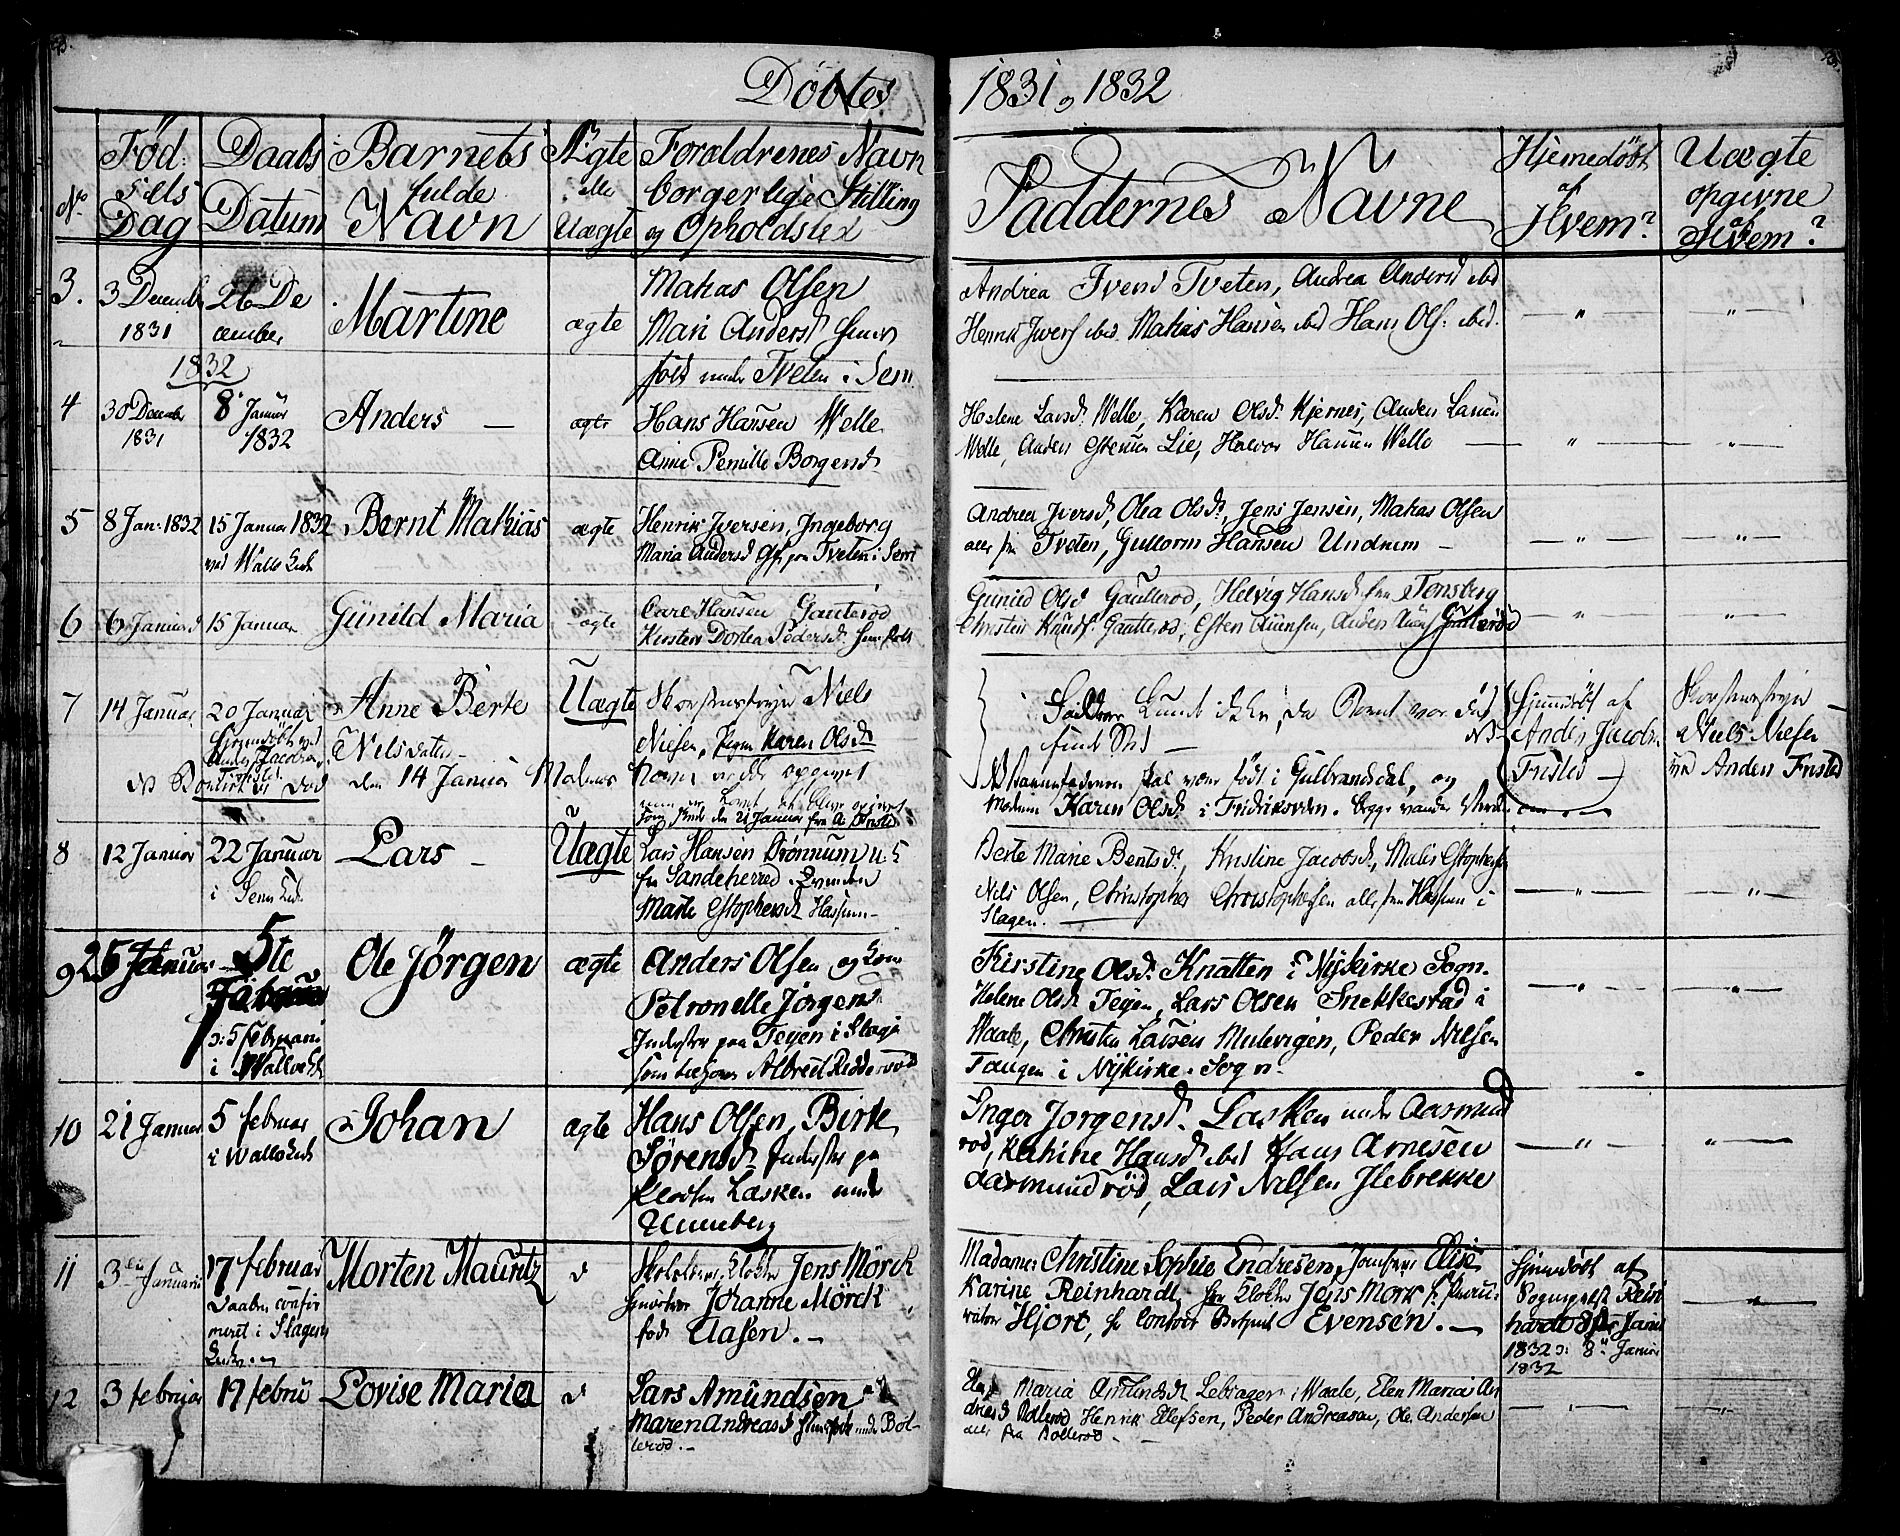 Döbte 1831 og 1832
No Födsels Dag
Daabs Datum
Barnets fulde Navn
Ægte eller Uægte
Forældrenes Navn
borgerlige Stilling
og Opholdsted
Faddernes Navne
Hjemedöbt af Hvem?
Uægte opgivne af Hvem?
3. 3 December 1831
26 December
Martine
ægte
Mathias Olsen
Mari Andersd
födt under Tveten i Sem
Andrea Iversd Tveten, Andrea Andersd ibid
Henrik Ivers ibid Mathias Hansen ibid Hans Ols. ibid.
1832
4 30 December 1831
8 Januar 1832
Anders —
ægte
Hans Hansen Welle
Anne Pernille Borgersd
Helene Larsd. Welle, Karen Olsd. Kjernes, Anders Larsen
Welle, Anders Lie, Halvor Hansen Welle
5 8 Jan: 1832
15 Januar 1832
ved Wallö Kirke
Bernt Mathias
ægte
Henrik Iversen, Ingeborg
Maria Andersd paa Tveten i Sem
Andrea Iversd, Olea Olsd, Jens Jensen, Mathias Olsen
alle fra Tveten, Guttorm Hansen Undrum —
6 6 Januar
15 Januar
Günild Maria
ægte
Carl Hansen Gauteröd
Kirsten Dortea Pedersd.
Gunild Olsd Gauteröd, Helvig Hansd fra Tonsberg
Christen Knuds. Gauteröd, Esten Hansen, Anders Gauteröd
7 14 Januar
20 Januar
Hjemedöbt ved
Anders Jacobsen
Fristed
Anne Berte
Nilsdatter
Uægte
Skorstensfejer Niels
Nielsen, Pigen Karen Olsd
NB Barnet er död den 14 Januar Moderens Navn opgivet
den 21 Januar fra A Fristed
Faddere kunde ikke da Barnet var död
NB Barnefaderen skal være födt i Gulbrandsdal, og
Moderen Karen Olsd i Fridriksværn. begge
Hjemedöbt af
Anders Jacobsen
Fristed —
Skorstensfejer
Niels Nielsen
ved Anders Fristed
8 12 Januar
22 Januar
i Sem Kirke
Lars —
Uægte
Lars Hansen Brönnum
fra Sandeherred. Qvinden
Marte Estophersd Hassum —
Berte Marie Bentsd, Kristine Jacobsd, Mathis Estophersen
Nils Olsen, Christopher Christophersen alle fra Hassum i
Slagen.
9 25 Januar
5te
5 Februari
i Wallö Kirke
Ole Jörgen
ægte
Anders Olsen og Kone
Petronelle Jörgensd
Inderster paa Tejen i Slagen
som tilhörer Albrect Ridderwold
Kirstine Olsd. Knatten i Nykirke Sogn.
Helene Olsd Tejen, Lars Olsen Snekkestad i
Waale, Christen Larsen Mulevigen, Peder Nilsen
Tangen i Nykirke Sogn.
10 21 Januar
5 Februar
i Wallö Kirke
Johan
ægte
Hans Olsen, Birte
Sörensd. Inderster paa
Pladsen Lasken under
Unneberg
Inger Jorgensd. Lasken under Aarmund
röd, Kathine Hansd ibid Hans Arnesen
Aarmundröd, Lars Nilsen Ilebrekke
11 3 Januari
17 Februar
Daaben confir
meret i Slagens
Kirke. —
Morten Mauritz
Skolelærer, Klokker Jens Mörck
Johanne Mörck
föd Aasen. —
Madame Christine Sophie Endresen, Jomfrue Elise
Karine Reinhardt, Hr Klokker Jens Mörk, Hr Procu-
rator Hjort, Hr Contoir Betjent Evensen. —
Hjemedöbt af
Sogneprest Rein
hardt Janu
1832 : 8 Januar
1832
12 3 Februar
19 Febru
Lovise Maria
Lars Amundsen
Maren Andreasd under Bol-
leröd. —
Maria Amundsd Lebsager i Waale, Elen Maria An
driasd Bolleröd Henrik Ellefsen, Peder Andreasen, Ole Andersen
alle fra Bolleröd. —